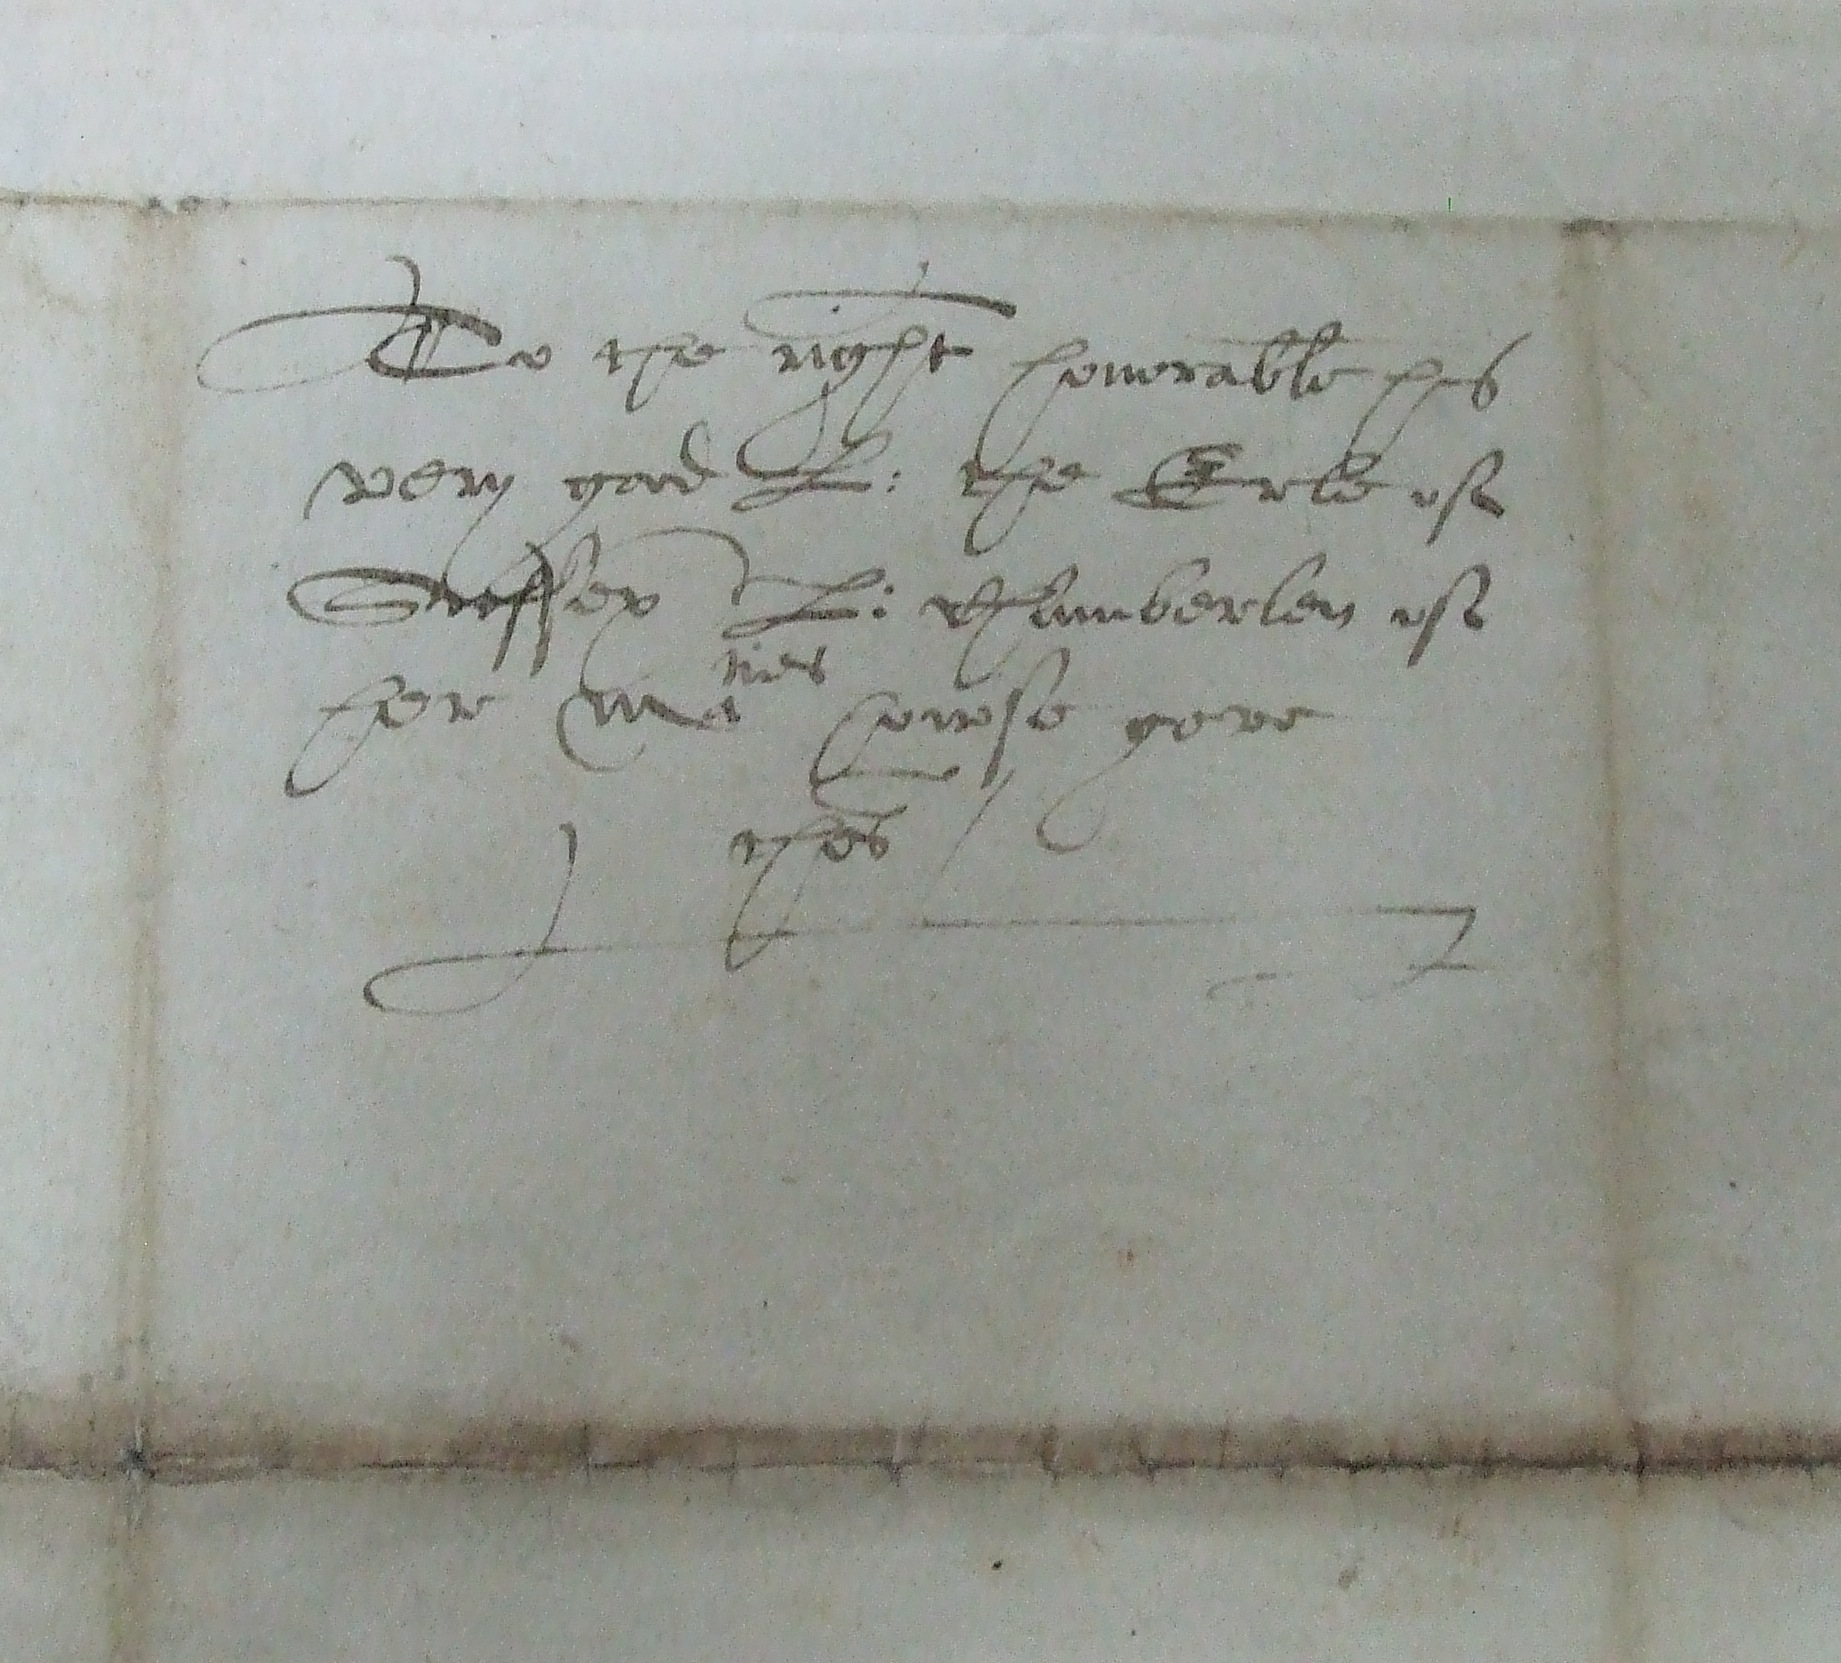 To the right honorable his
very good L: the Erle of
Sussex L: Chamberlen of
her Ma ties howse geve
thes